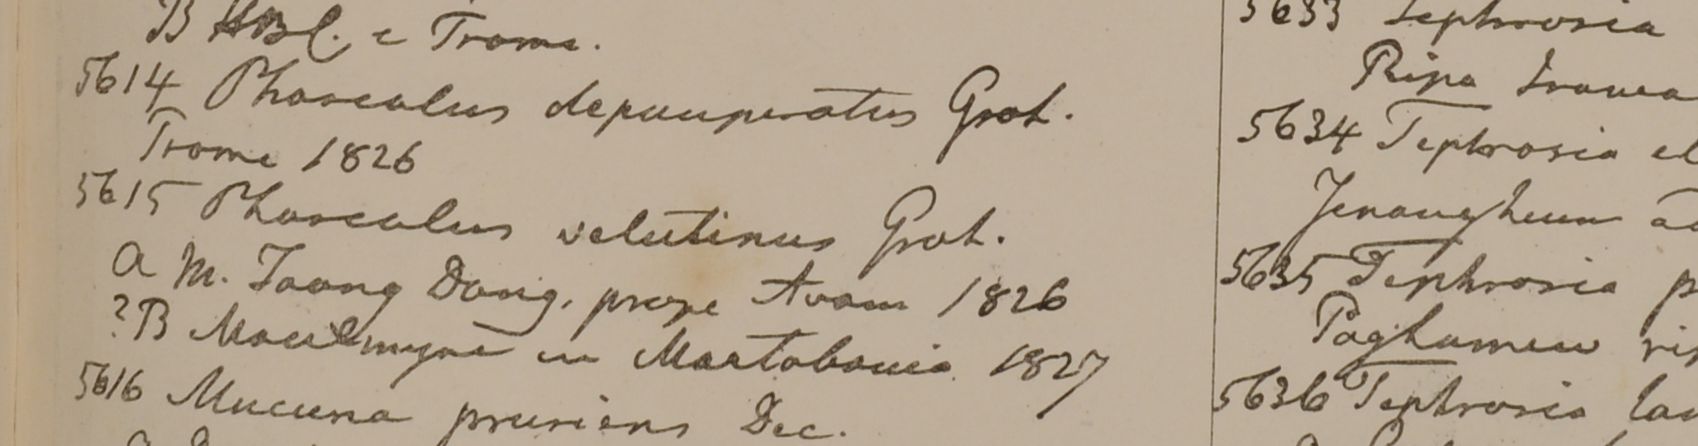 B HBC. e Prome.
5614 Phaseolus depauperatus Grah.
Prome 1826
5615 Phaseolus velutinus Grah.
a M. Taong Dong. prope Avam 1826
?B Moulmyne in Martabania 1827
5616 Mucuna pruriens Dec.
5633 Tephrosia
Ripa Irawa
5634 Tephrosia el
Yenanghuen ad
5635 Tephrosia p
Paghamew rip
5636 Tephrosia lan